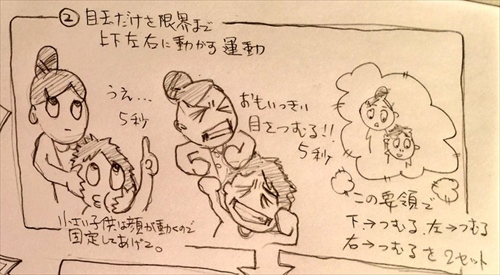 ② 目玉だけを限界まで
上下左右に動かす運動
うえ…
5秒
おもいっきり
目をつむる!!
5秒
小さい子供は顔が動くので
固定してあげて。
この要領で
下→つむる、左→つむる
右→つむるを2セット